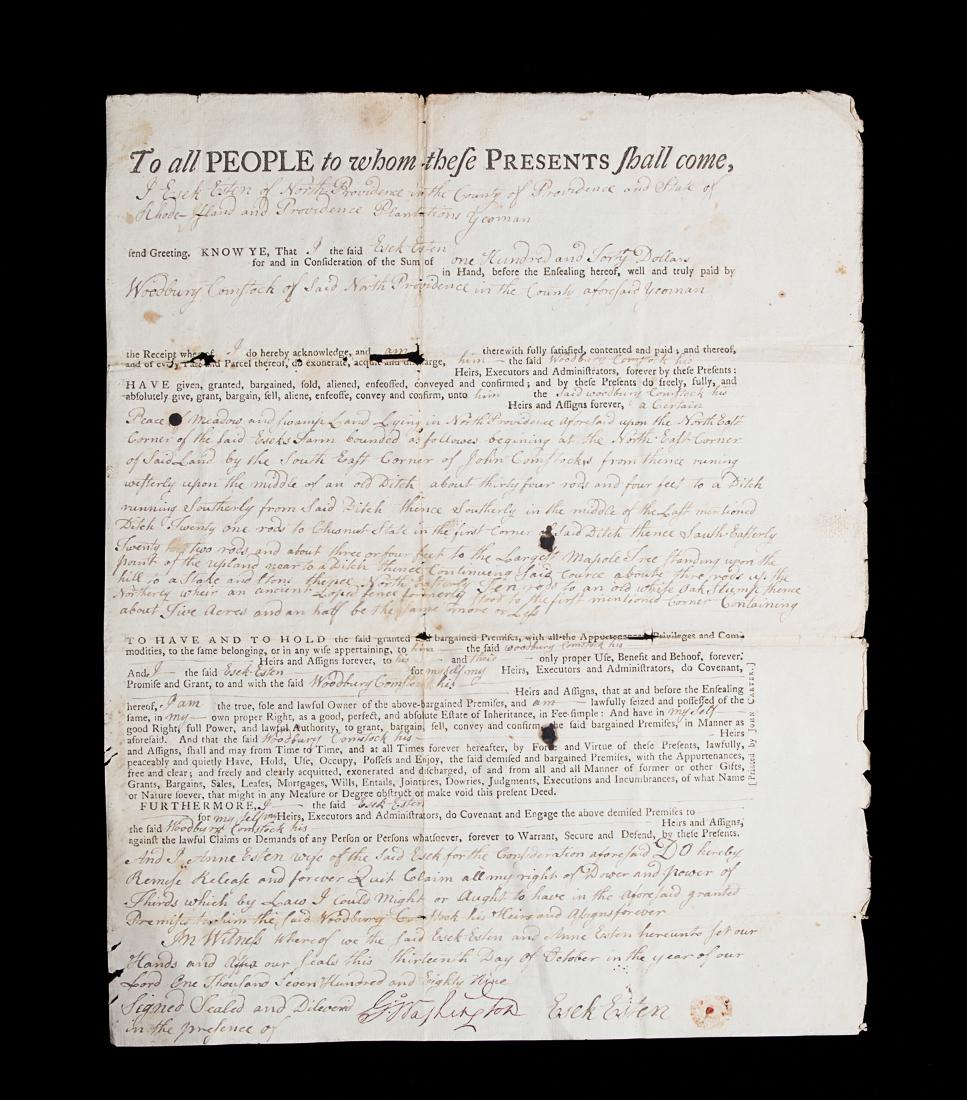 To all PEOPLE to whom these PRESENTS shall come,
I Esek Esten of North Providence in the County of Providence and State of
Rhode-Island and Providence Plantations Yeoman
send Greeting. KNOW YE, That I the said Esek Esten
for and in Consideration of the Sum of one Hundred and Forty Dollars
in Hand, before the Ensealing hereof, well and truly paid by
Woodbury Comstock of Said North Providence in the County aforesaid Yeoman
the Receipt whereof I do hereby acknowledge, and am therewith fully satisfied, contented and paid; and thereof,
and of every Part and Parcel thereof, do exonerate, acquit and discharge, him the said Woodbury Comstock his
Heirs, Executors and Administrators, forever by these Presents:
HAVE given, granted, bargained, sold, aliened, enfeoffed, conveyed and confirmed; and by these Presents do freely, fully, and
absolutely give, grant, bargain, sell, aliene, enfeoffe, convey and confirm, unto him the said woodbury Comstock his
Heirs and Assigns forever, a Certain
Peace of Meadow and Swamp Land Lying in North Providence aforesaid upon the North East
Corner of the Said Eseks Farm bounded as followes begining at the North East Corner
of Said Land by the South East Corner of John Comstocks from thence runing
westerly upon the middle of an old Ditch about thirty four rods and four feet to a Ditch
running Southerly from Said Ditch thence Southerly in the middle of the Last mentioned
Ditch Twenty one rods to Chesnut Stake in the first Corner of Said Ditch thence South Easterly
Twenty two rods and about three or four feet to the Largest Mapole Tree Standing upon the
point of the upland near to a Ditch thence Continuing Said Cource aboute three rods up the
hill to a Stake and Stons thence North Easterly Ten rods to an old white Oak Stump thence
Northerly wheir an ancient Loped fence formerly Stood to the first mentioned Corner Containing
about Five Acres and an half be the Same more or Less
TO HAVE AND TO HOLD the said granted and bargained Premises, with all the Appurtenances, Privileges and Com-
modities, to the same belonging, or in any wise appertaining, to him the said woodbury Comstock his
Heirs and Assigns forever, to his and their only proper Use, Benefit and Behoof, forever.
And I the said Esek Esten for myself my Heirs, Executors and Administrators, do Covenant,
Promise and Grant, to and with the said Woodbury Comstock his
Heirs and Assigns, that at and before the Ensealing
hereof, I am the true, sole and lawful Owner of the above-bargained Premises, and am lawfully seized and possessed of the
same, in my own proper Right, as a good, perfect, and absolute Estate of Inheritance, in Fee-simple: And have in my Self
good Right, full Power, and lawful Authority, to grant, bargain, sell, convey and confirm, the said bargained Premises, in Manner as
aforesaid. And that the said Woodbury Comstock his Heirs
and Assigns, shall and may from Time to Time, and at all Times forever hereafter, by Force and Virtue of these Presents, lawfully,
peaceably and quietly Have, Hold, Use, Occupy, Possess and Enjoy, the said demised and bargained Premises, with the Appurtenances,
free and clear; and freely and clearly acquitted, exonerated and discharged, of and from all and all Manner of former or other Gifts,
Grants, Bargains, Sales, Leases, Mortgages, Wills, Entails, Jointures, Dowries, Judgments, Executions and Incumbrances, of what Name
or Nature soever, that might in any Measure or Degree obstruct or make void this present Deed.
FURTHERMORE, I the said Esek Esten
for my self my Heirs, Executors and Administrators, do Covenant and Engage the above demised Premises to
the said Woodbury Comstock his Heirs and Assigns,
against the lawful Claims or Demands of any Person or Persons whatsoever, forever to Warrant, Secure and Defend, by these Presents.
[Printed by JOHN CARTER.]
And I Anne Esten wife of the Said Esek for the Consideration aforesaid DO hereby
Remise Release and forever Quit Claim all my right of Dower and power of
Thirds which by Law I Could Might or Aught to have in the aforesaid granted
Premises to him the Said Woodbury Comstock his Heirs and Assigns forever
In Witness whereof we the Said Esek Esten and Anne Esten hereunto Set our
Hands and Affix our Seals this thirteenth Day of October in the year of our
Lord One Thousand Seven Hundred and Eighty Nine
Signed Sealed and Dileverd G:Washington Esek Esten
in the presence of